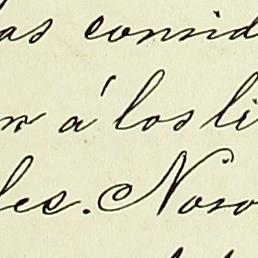 as consid
r á los li
les. Noso